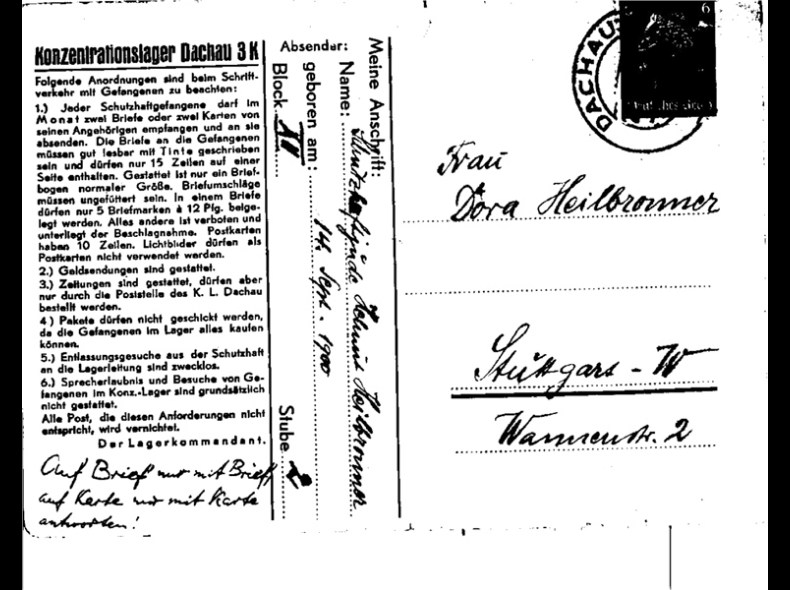 Konzentrationslager Dachau 3 K
Folgende Anordnungen sind beim Schrift-
verkehr mit Gefangenen zu beachten:
1.) Jeder Schutzhaftgefangene darf im
Monat zwei Briefe oder zwei Karten von
seinen Angehörigen empfangen und an sie
absenden. Die Briefe an die Gefangenen
müssen gut lesbar mit Tinte geschrieben
sein und dürfen nur 15 Zeilen auf einer
Seite enthalten. Gestattet ist nur ein Brief-
bogen normaler Größe. Briefumschläge
müssen ungefüttert sein. In einem Briefe
dürfen nur 5 Briefmarken à 12 Pfg. beige-
legt werden. Alles andere ist verboten und
unterliegt der Beschlagnahme. Postkarten
haben 10 Zeilen. Lichtbilder dürfen als
Postkarten nicht verwendet werden.
2.) Geldsendungen sind gestattet.
3.) Zeitungen sind gestattet, dürfen aber
nur durch die Poststelle des K. L. Dachau
bestellt werden.
4) Pakete dürfen nicht geschickt werden,
da die Gefangenen im Lager alles kaufen
können.
5.) Entlassungsgesuche aus der Schutzhaft
an die Lagerleitung sind zwecklos.
6.) Sprecherlaubnis und Besuche von Ge-
fangenen im Konz.-Lager sind grundsätzlich
nicht gestattet.
Alle Post, die diesen Anforderungen nicht
entspricht, wird vernichtet.
Der Lagerkommandant.
Auf Brief nur mit Brief,
auf Karte nur mit Karte
antworten!
Absender:
Meine Anschrift:
Name: Heilbronner
geboren am: 14. Sept. 1900
Block Stube 2
DACHAU
6
Frau
Dora Heilbronner
Stuttgart - W
Wannenstr. 2